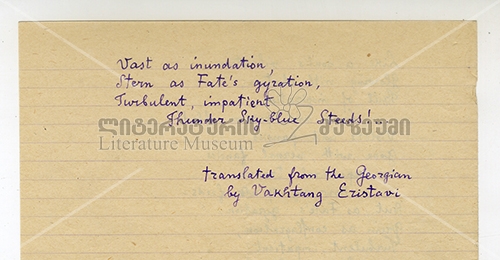 Vast as inundation,
Stern as Fate's gyration,
Turbulent, impatient
Thunder Sky-blue Steeds!...
ლიტერატურის მუზეუმი
Literature Museum
translated from the Georgian
by Vakhtang Eristavi